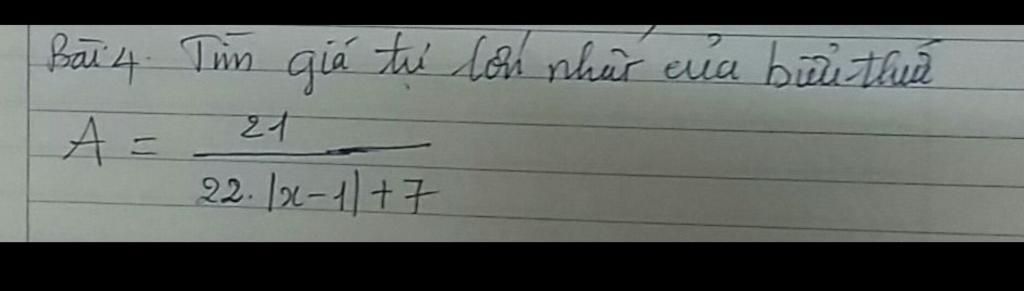 Bài 4. Tìm giá trị lớn nhất của biểu thức
A = 21 / 22. |x-1| + 7